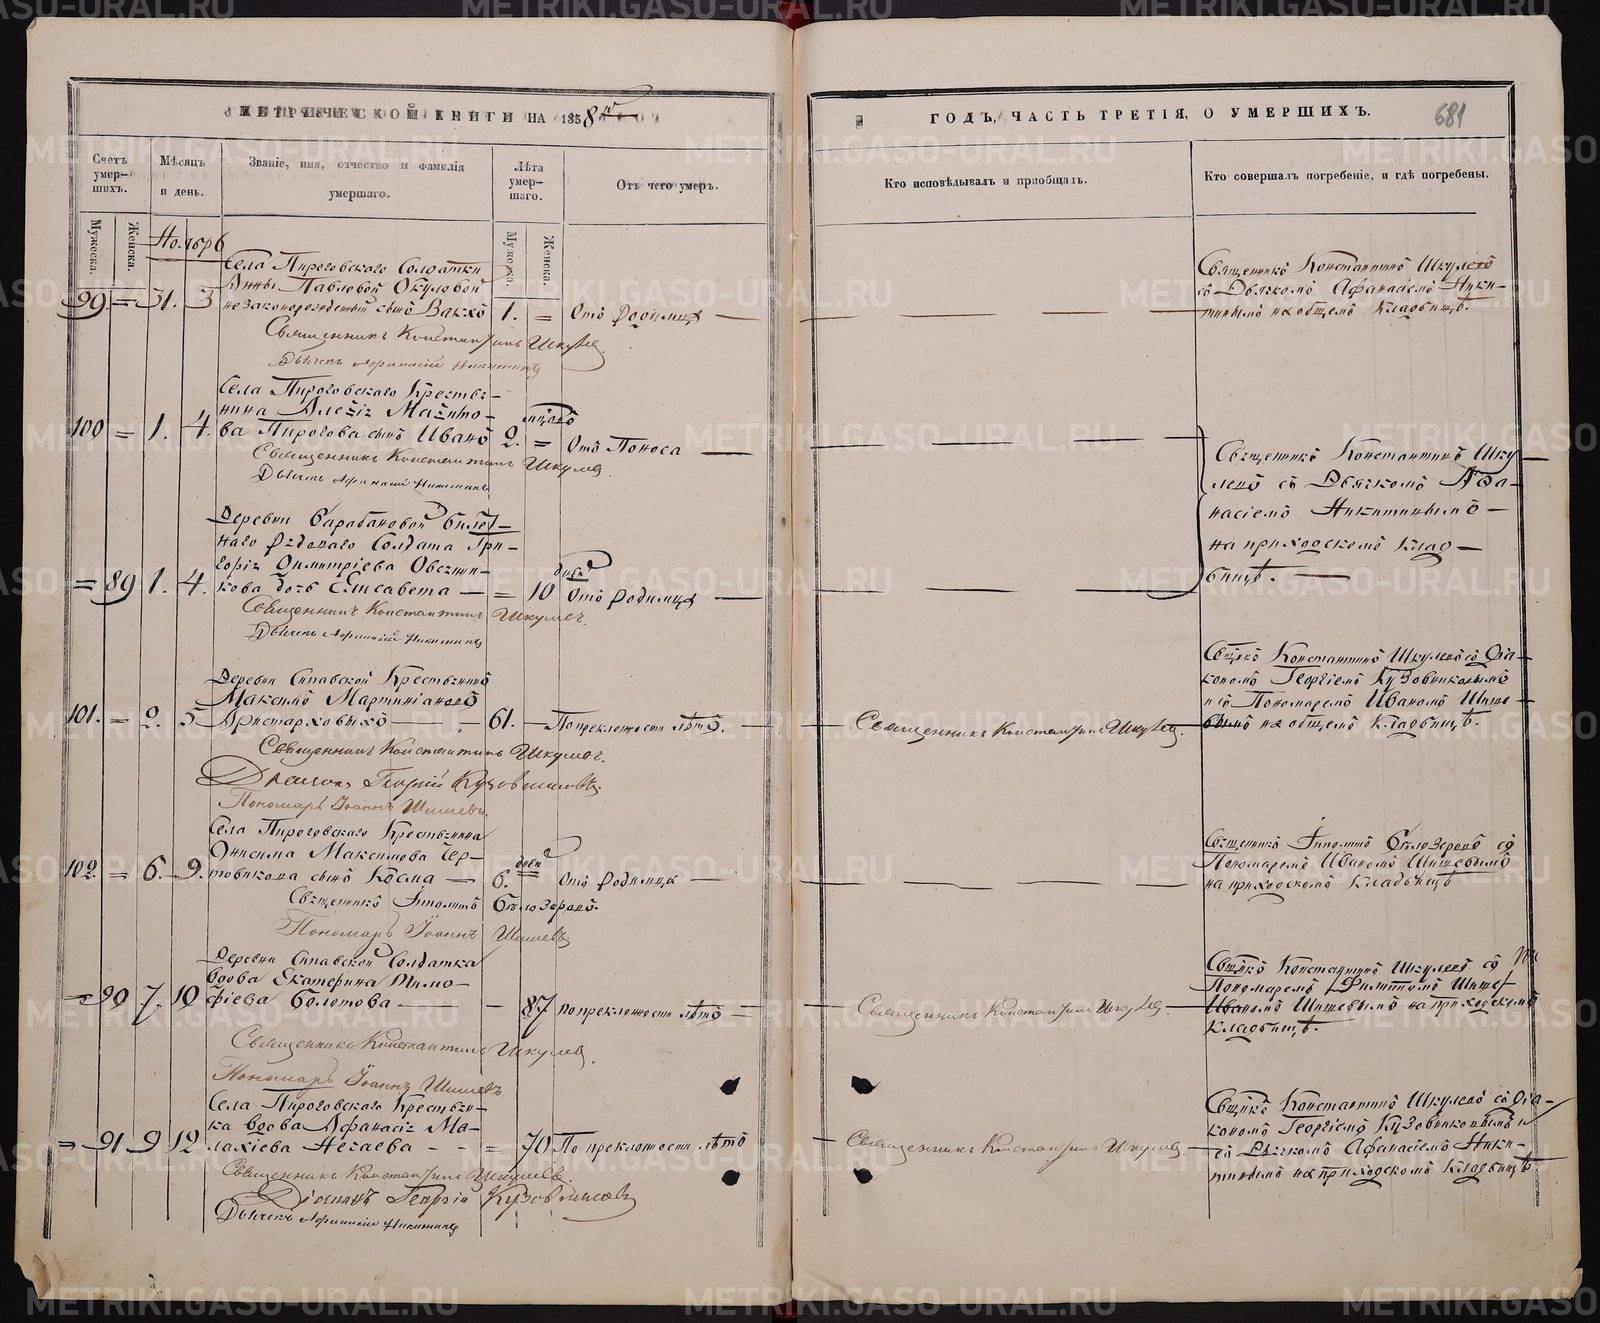 МЕТРИЧЕСКОЙ КНИГИ НА 1858й
Счетъ умер- шихъ.
Мѣсяцъ и день.
Званіе, имя, отчество и фамилія умершаго.
Лѣта умер- шаго.
Отъ чего умеръ.
Мужеска.
Женска.
Мужеска.
Женска.
Ноябрь
Села Пироговскаго Солдатки
Анны Павловой Окуловой
99 = 31. 3 незаконорожденный сынъ Вакхъ 1. = Отъ родимца
Священникъ Константинъ Шкулев
Дьячекъ Афанасій Никитинъ
Села Пироговскаго Крестья-
нина Алексія
100 = 1. 4. ва Пирогова сынъ Иванъ 2. = Отъ Поноса
Священникъ Константинъ Шкулев
Дьячекъ Афанасій Никитинъ
Деревни Барабановой билет-
наго рядоваго Солдата Гри-
горія Димитріева Овсян-
= 89 1. 4. кова дочь Елисавета = 10 дней Отъ родимца
Священникъ Константинъ Шкулев
Дьячекъ Афанасій Никитинъ
Деревни Крестьянинъ
Максимъ Мартиніановъ
101. = 2. 5 Аристарховыхъ 61. По преклоности лѣтъ.
Священникъ Константинъ Шкулев.
Діаконъ Георгій
Пономарь Іоаннъ Шишевъ
Села Пироговскаго Крестьянина
Онисима Максимова Чер-
102. = 6. 9. товикова сынъ Косма 6. дней Отъ родимца
Священникъ Ипполитъ Бѣлозеровъ.
Пономарь Іоаннъ Шишевъ
Деревни Солдатка
вдова Екатерина Тимо-
= 90 7. 10 фіева Болотова 87 по преклоности лѣтъ
Священникъ Константинъ Шкулев.
Пономарь Іоаннъ Шишевъ
Села Пироговскаго Крестьян-
ка вдова Афанасія Ма-
= 91 9 12 лахіева Нечаева = 70 По преклоности лѣтъ
Священникъ Константинъ Шкулевъ.
Діаконъ Георгій
Дьячекъ Афанасій Никитинъ
ГОДЪ, ЧАСТЬ ТРЕТІЯ, О УМЕРШИХЪ.
681
Кто исповѣдывалъ и пріобщалъ.
Кто совершалъ погребеніе, и гдѣ погребены.
Священникъ Константинъ Шкулевъ
съ Дьячкомъ Афанасіемъ Ники-
тинымъ на общемъ Кладбищѣ.
Священникъ Константинъ Шку
левъ съ Дьячкомъ Афа-
насіемъ Никитинымъ
на приходскомъ Клад-
бищѣ.
Священникъ Константинъ Шкулев.
Свщнкъ Константинъ Шкулевъ съ Діа-
кономъ Георгіемъ
и съ Пономаремъ Иваномъ Шише-
вымъ на общемъ Кладбищѣ.
Священникъ Ипполитъ Бѣлозеровъ съ
Пономаремъ Иваномъ Шишевымъ
на приходскомъ Кладбищѣ
Священникъ Константинъ Шкулев.
Свщнкъ Константинъ Шкулевъ съ
Пономаремъ
Иваномъ Шишевымъ на приходскомъ
Кладбищѣ.
Священникъ Константинъ Шкулев.
Свщнкъ Константинъ Шкулевъ съ Діа-
кономъ Георгіемъ и
съ Дьячкомъ Афанасіемъ Ники-
тинымъ на приходскомъ Кладбищѣ.
METRIKI.GASO-URAL.RU